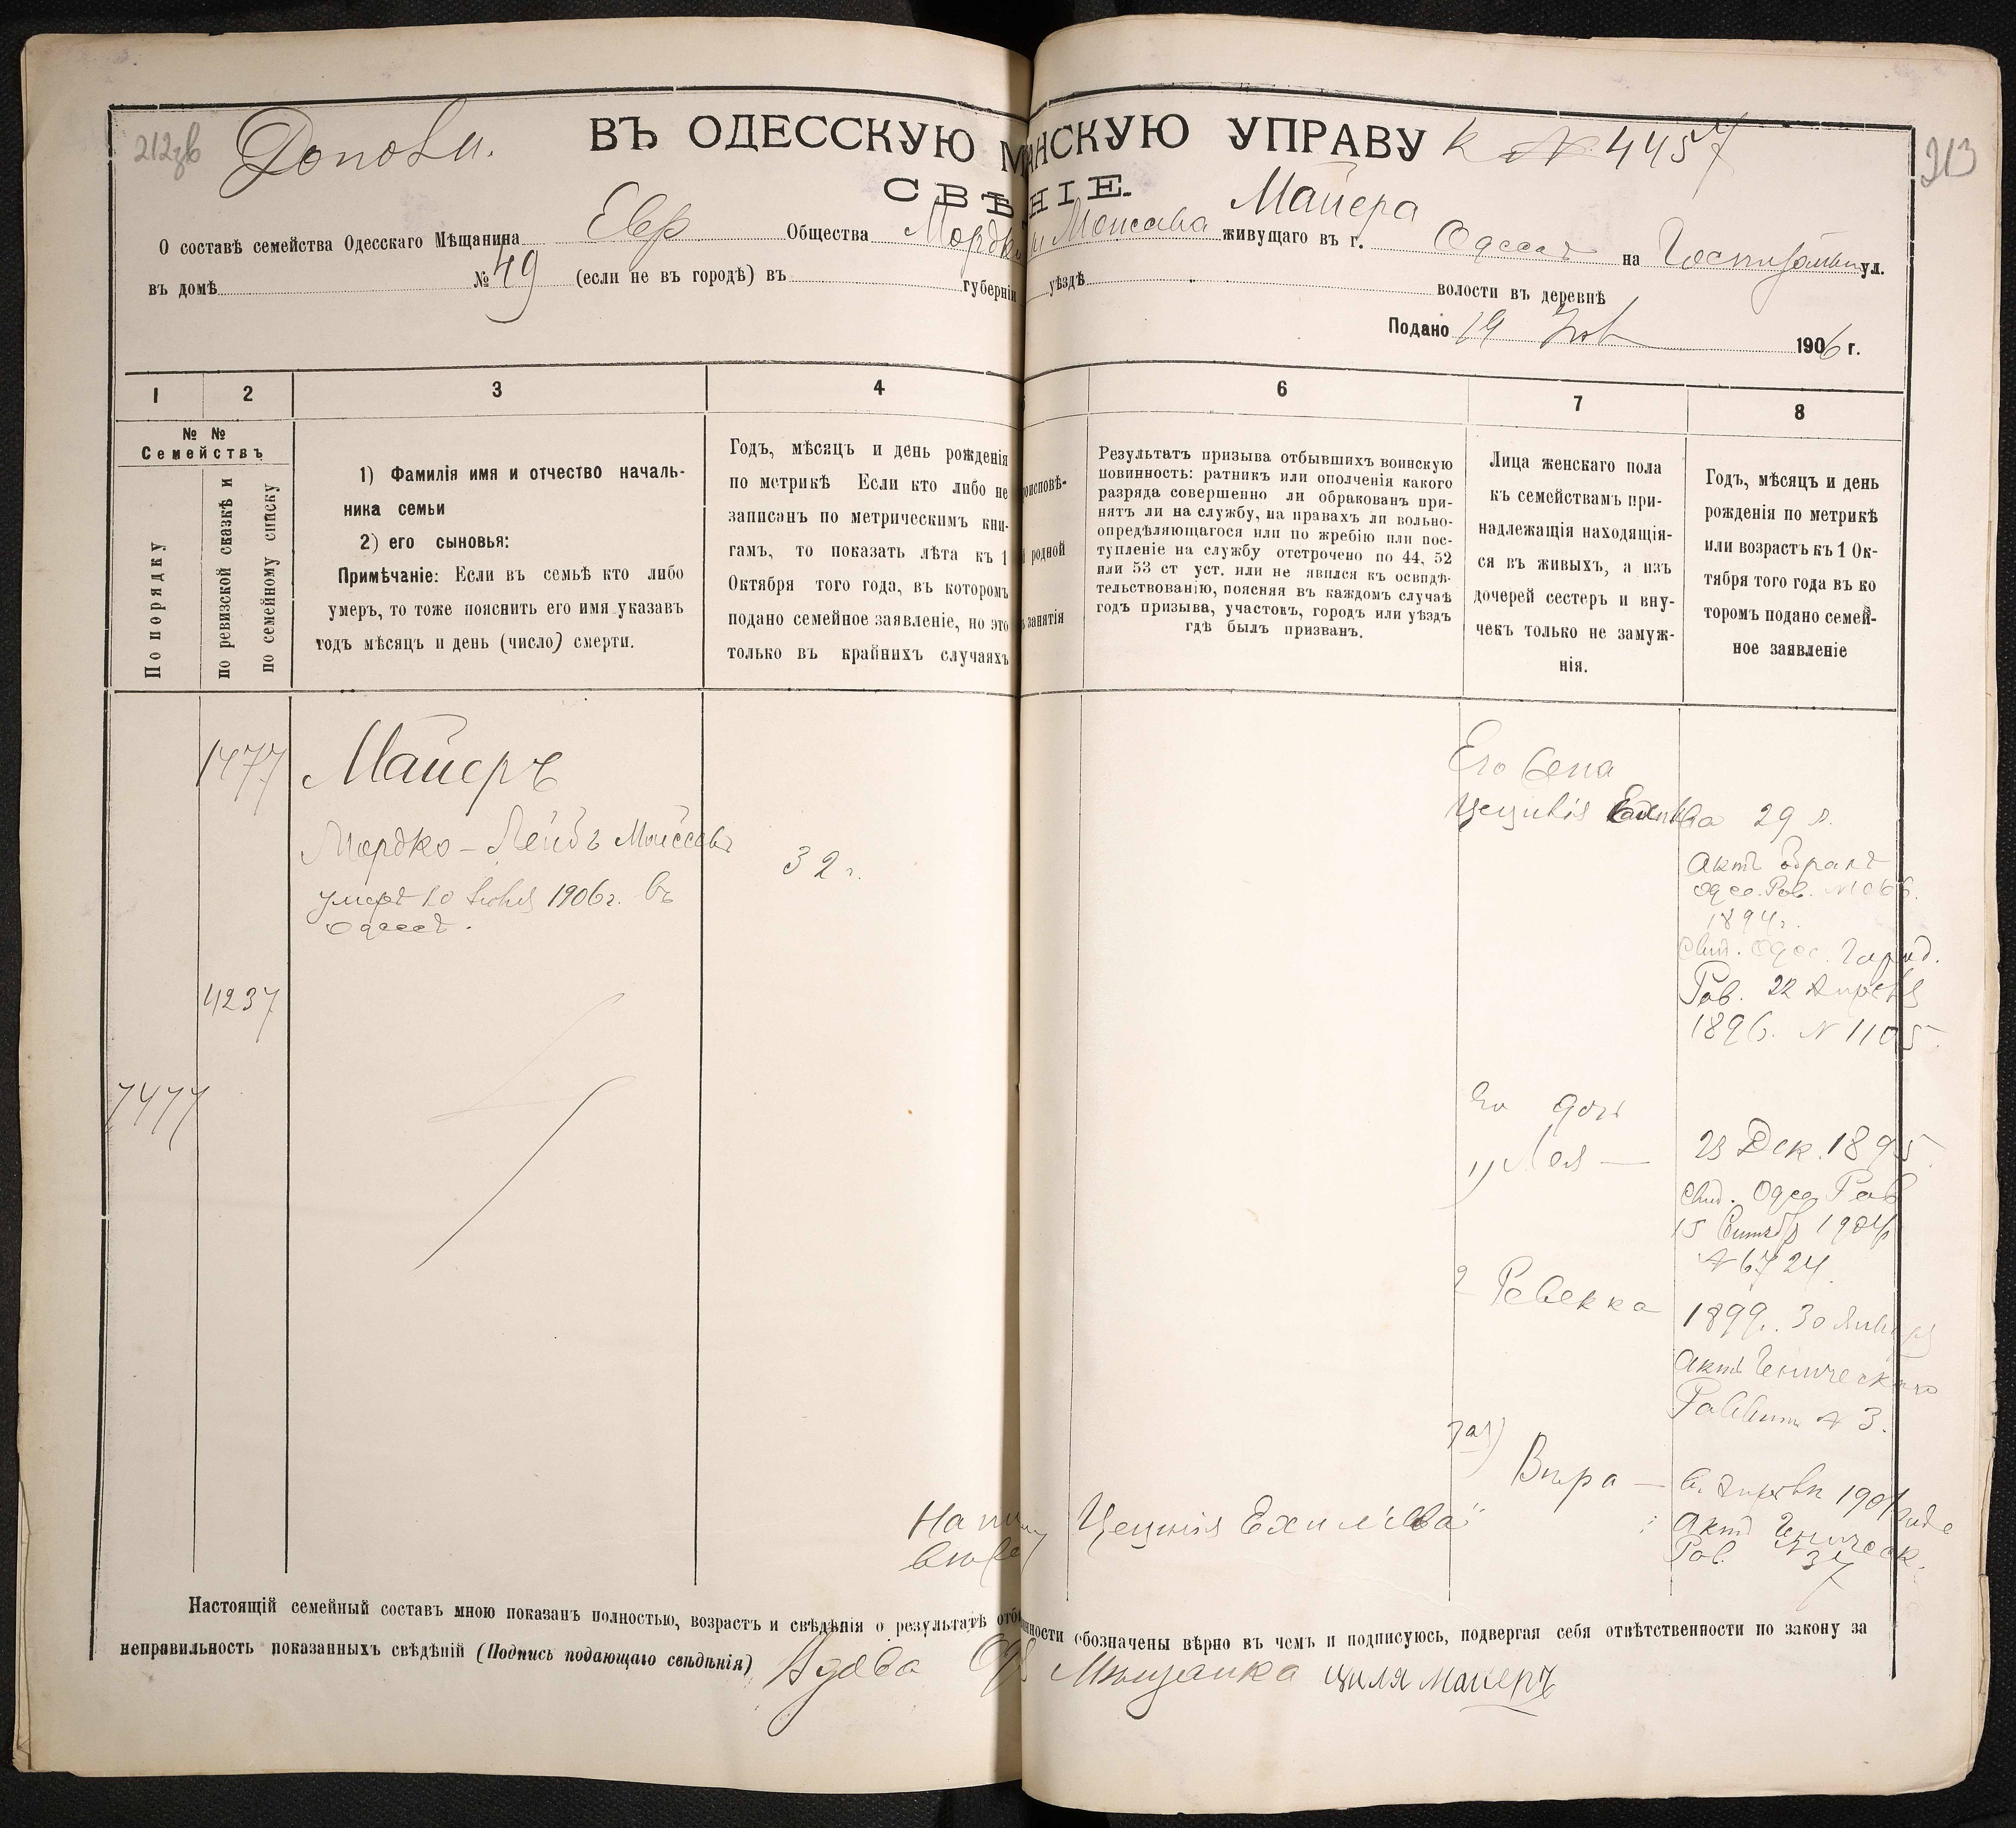 212зв
213
Дополн.
ВЪ ОДЕССКУЮ М АНСКУЮ УПРАВУ к № 4457
СВѢ НІЕ.
Майера
О составѣ семейства Одесскаго Мѣщанина Евр Общества Мордк Моисева живущаго въ г. Одессѣ на ул.
въ домѣ № 49 (если не въ городѣ) въ губерніи уѣздѣ волости въ деревнѣ
Подано 19 1906 г.
1 2 3 4 6 7 8
№ №
Семействъ
По порядку
по ревизской сказкѣ и
по семейному списку
1) Фамилія имя и отчество началь-
ника семьи
2) его сыновья:
Примѣчаніе: Если въ семьѣ кто либо
умеръ, то тоже пояснить его имя указавъ
годъ мѣсяцъ и день (число) смерти.
Годъ, мѣсяцъ и день рожденія
по метрикѣ Если кто либо не
записанъ по метрическимъ кни-
гамъ, то показать лѣта къ 1
Октября того года, въ которомъ
подано семейное заявленіе, но это
только въ крайнихъ случаяхъ
оисповѣ-
родной
занятія
Результатъ призыва отбывшихъ воинскую
повинность: ратникъ или ополченія какого
разряда совершенно ли обракованъ при-
нятъ ли на службу, на правахъ ли вольно-
опредѣляющагося или по жребію или пос-
тупленіе на службу отстрочено по 44, 52
или 53 ст уст. или не явился къ освидѣ-
тельствованію, поясняя въ каждомъ случаѣ
годъ призыва, участокъ, городъ или уѣздъ
гдѣ былъ призванъ.
Лица женскаго пола
къ семействамъ при-
надлежащія находящія-
ся въ живыхъ, а изъ
дочерей сестеръ и вну-
чекъ только не замуж-
нія.
Годъ, мѣсяцъ и день
рожденія по метрикѣ
или возрастъ къ 1 Ок-
тября того года въ ко
торомъ подано семей-
ное заявленіе
1477 Майеръ
Мордко-Лейбъ Моисеевъ 32 г.
умеръ 10 Іюня 1906 г. въ
Одессѣ.
4237
7477
Его жена
Цецилія 29 л.
Актъ о бракѣ
Одес. Рав.
1894 г.
Свид. Одес. Город.
Рав. 22 Апрѣля
1896. № 1105
Его дочь
1) Лея — 23 Дек. 1895
Свид. Одес. Рав
15 Сентяб 1904
№ 6724.
2 Ревекка 1899 г. 30 Января
Актъ Геническаго
Раввин № 3.
3) Вѣра —
Актъ Геническ.
Рав. № 37
Цецилія Ехилева
Настоящій семейный составъ мною показанъ полностью, возрастъ и свѣдѣнія о результатѣ отб нности обозначены вѣрно въ чемъ и подписуюсь, подвергая себя отвѣтственности по закону за
неправильность показанныхъ свѣдѣній (Подпись подающаго свѣдѣнія) Вдова Од Мѣщанка Циля Майеръ